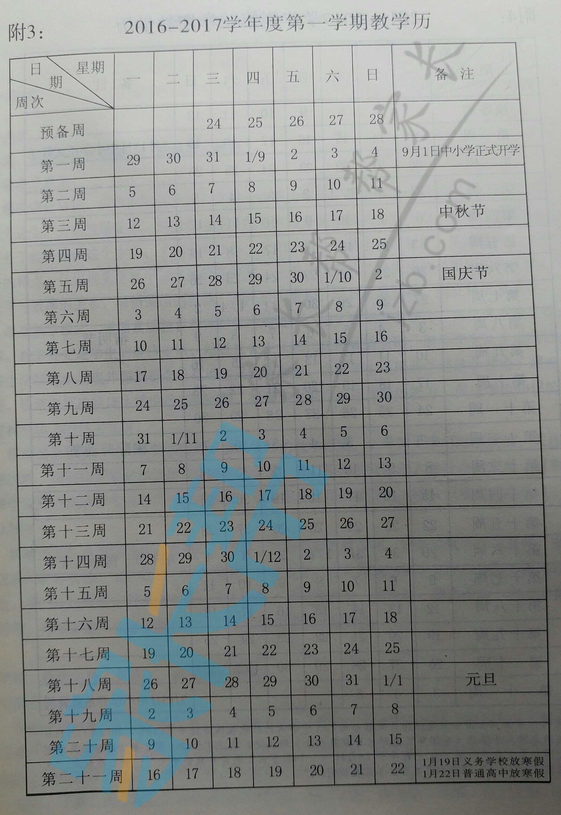 附3：
2016-2017学年度第一学期教学历
日期 星期 周次 一 二 三 四 五 六 日 备 注
预备周 24 25 26 27 28
第一周 29 30 31 1/9 2 3 4 9月1日中小学正式开学
第二周 5 6 7 8 9 10 11
第三周 12 13 14 15 16 17 18 中秋节
第四周 19 20 21 22 23 24 25
第五周 26 27 28 29 30 1/10 2 国庆节
第六周 3 4 5 6 7 8 9
第七周 10 11 12 13 14 15 16
第八周 17 18 19 20 21 22 23
第九周 24 25 26 27 28 29 30
第十周 31 1/11 2 3 4 5 6
第十一周 7 8 9 10 11 12 13
第十二周 14 15 16 17 18 19 20
第十三周 21 22 23 24 25 26 27
第十四周 28 29 30 1/12 2 3 4
第十五周 5 6 7 8 9 10 11
第十六周 12 13 14 15 16 17 18
第十七周 19 20 21 22 23 24 25
第十八周 26 27 28 29 30 31 1/1 元旦
第十九周 2 3 4 5 6 7 8
第二十周 9 10 11 12 13 14 15
第二十一周 16 17 18 19 20 21 22 1月19日义务学校放寒假
1月22日普通高中放寒假
家长帮
jzb.com